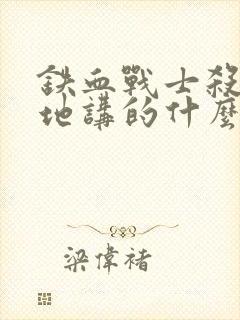 鐵血戰士殺
地講的什麼
梁偉褚